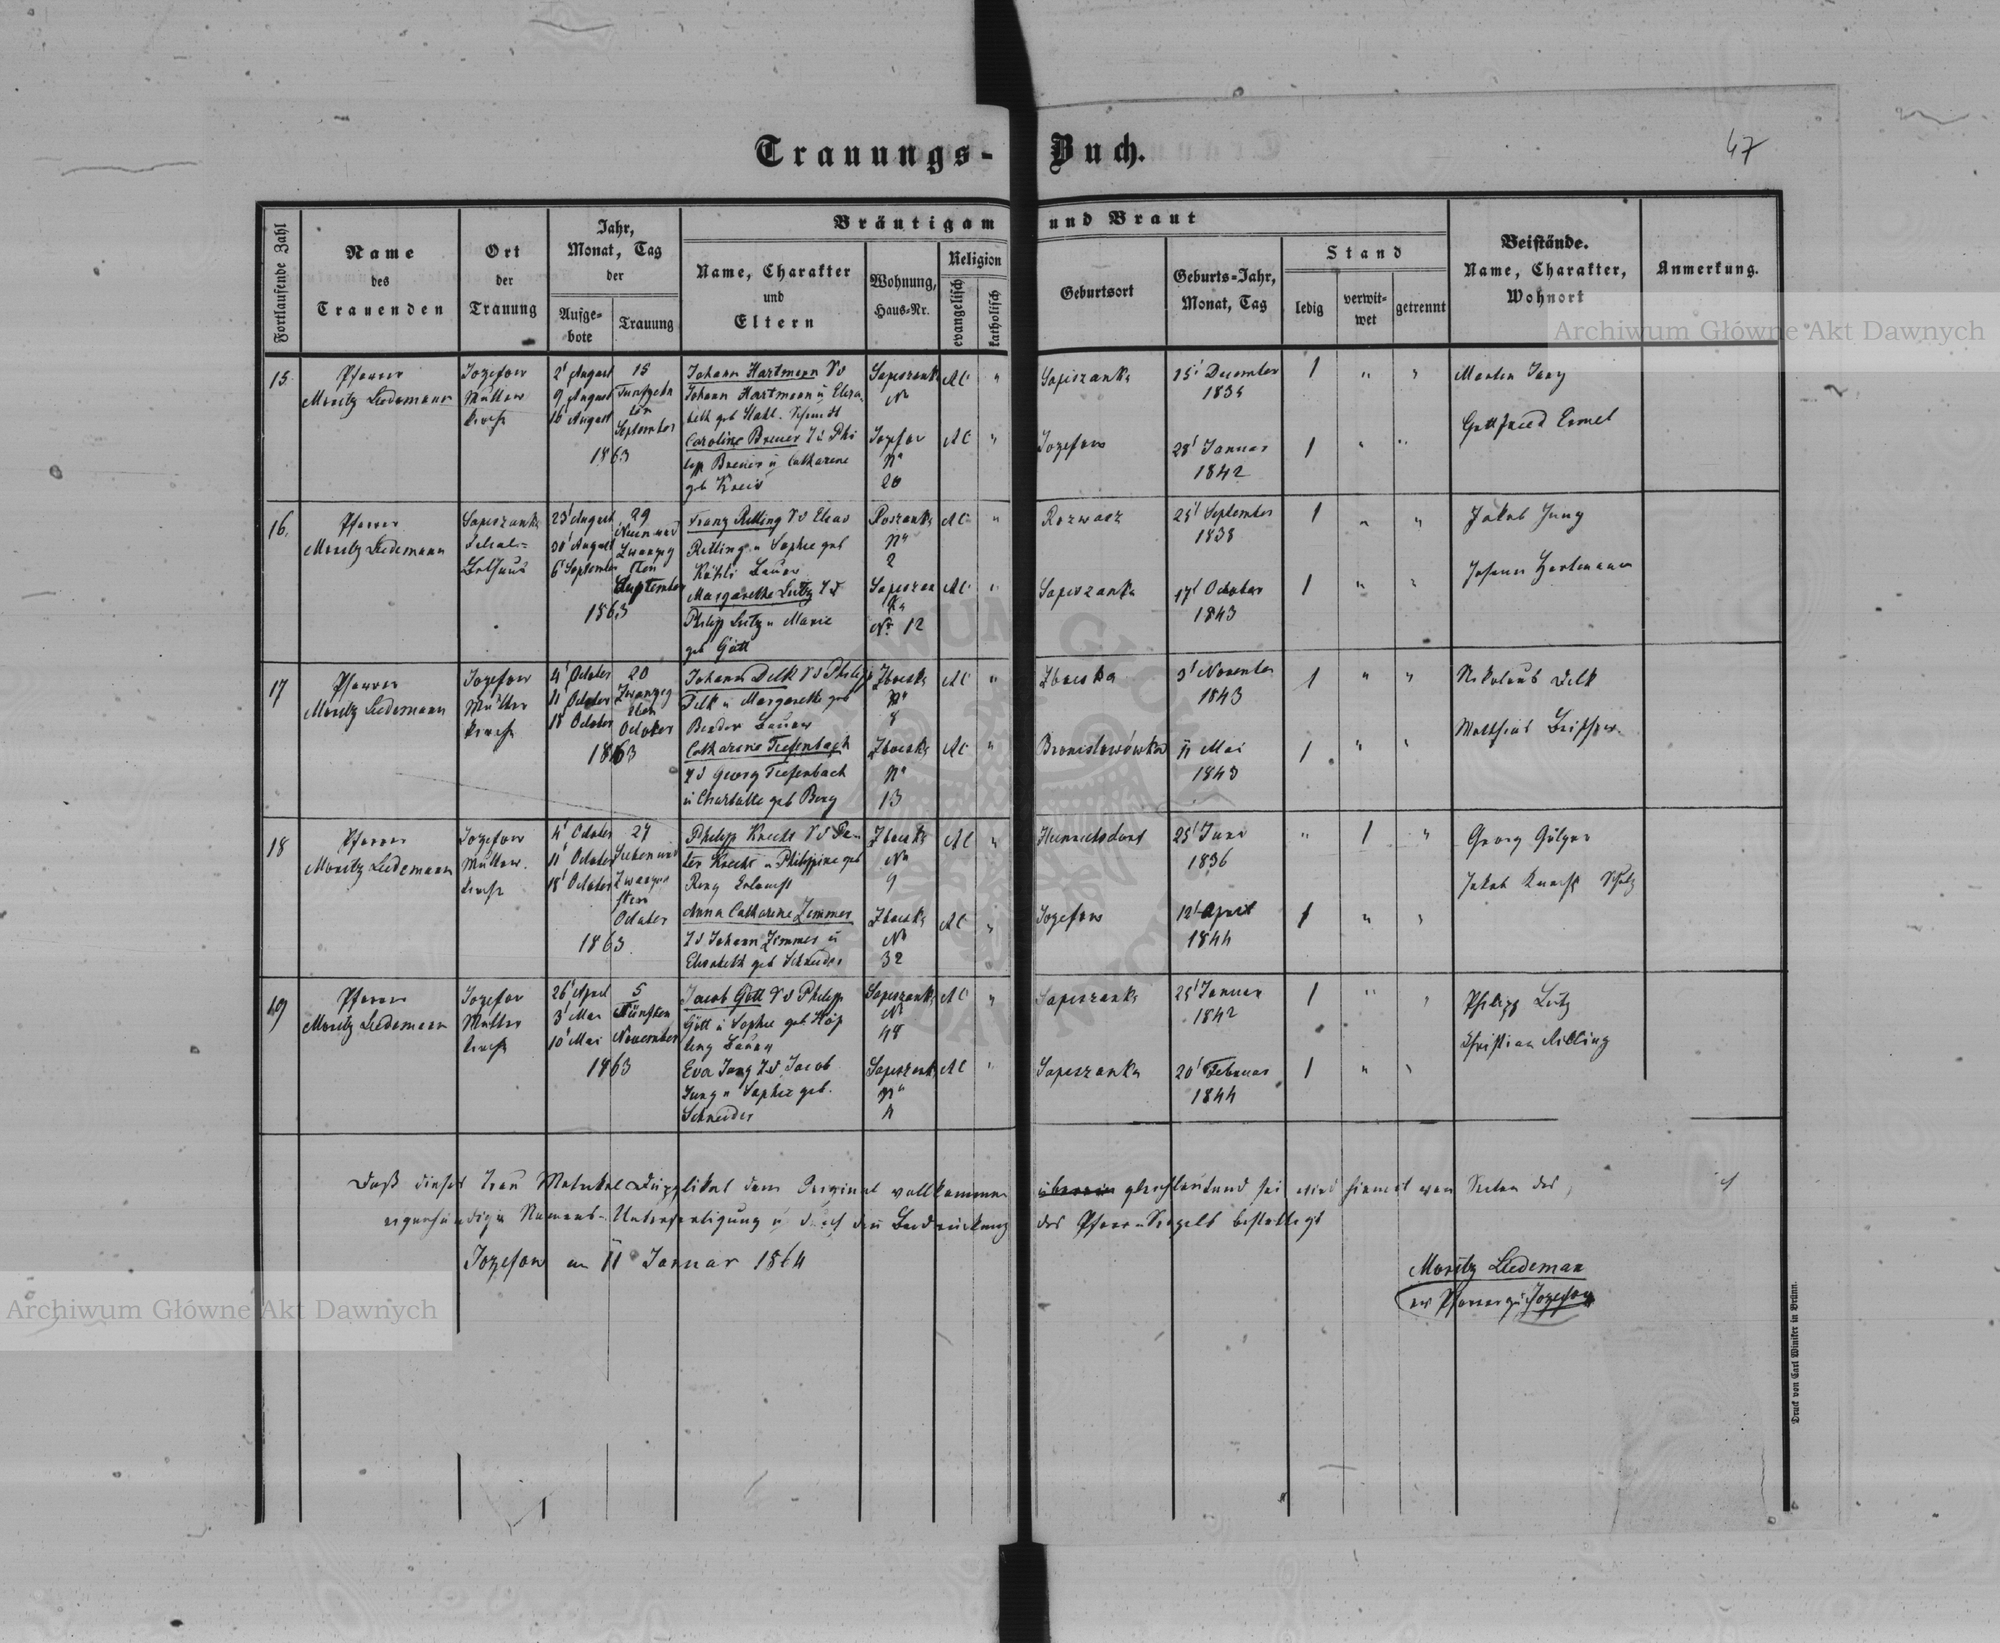 Trauungs- Buch.
47
Fortlaufende Zahl
Name
des
Trauenden
Ort
der
Trauung
Jahr,
Monat, Tag
der
Aufge-
bote
Trauung
Bräutigam und Braut
Name, Charakter
und
Eltern
Wohnung,
Haus-Nr.
Religion
evangelisch
katholisch
Geburtsort
Geburts-Jahr,
Monat, Tag
Stand
ledig
verwit-
wet
getrennt
Beistände.
Name, Charakter,
Wohnort
Anmerkung.
Archiwum Główne Akt Dawnych
15.
Pfarrer
Moritz Liedemann
Jozefow
Mutter
kirche
2' August
9' August
16' August
15
Fünfzehn
ten
September
1863
Johann Hartmann
Johann Hartmann u Elisa
beth geb Stahl. Schmidt
Caroline Breuer Phi
lipp Breuer u Catharine
geb Kreis
Sapiszanka
No
Jozefow
No
20
AC "
AC "
Sapiszanka
Jozefow
15' December
1835
28' Januar
1842
1 " "
1 " "
Martin Jung
Gottfried Ermel
16.
Pfarrer
Moritz Liedemann
Sapiszanka
Schul-
Bethaus
23' August
30' August
6' September
29
Neun und
Zwanzig
sten
September
1863
Franz Ritling
Ritling u Sophie geb
Bauer
Margarethe Lutz
Philipp Lutz u Marie
geb Gött
No
2
Sapiszan
ka
No. 12
AC "
AC "
Sapiszanka
25' September
1838
17' October
1843
1 " "
1 " "
Jakob Jung
Johann Hartmann
17
Pfarrer
Moritz Liedemann
Jozefow
Mutter
kirche
4' October
11' October
18' October
20
Zwanzig
sten
October
1863
Johann Delk Philipp
Delk u Margarethe geb
Bender Bauer
Catharine Tiefenbach
Georg Tiefenbach
u Charlotte geb Berg
Zboiska
No
8
Zboiska
No
13
AC "
AC "
Zboiska
Bronislawówka
3' November
1843
11 Mai
1843
1 " "
1 " "
Nikolaus Delk
Matthias
18
Pfarrer
Moritz Liedemann
Jozefow
Mutter
kirche
4' October
11' October
18' October
27
Sieben und
Zwanzig
sten
October
1863
Philipp Knecht Pe-
ter Knecht u Philippine geb
Anna Catharine Zimmer
Johann Zimmer u
Elisabeth geb Schneider
Zboiska
No
9
Zboiska
No
32
AC "
AC "
Heinrichsdorf
Jozefow
25' Juni
1836
12' April
1844
" 1 "
1 " "
Georg
Jakob Knecht
19
Pfarrer
Moritz Liedemann
Jozefow
Mutter
kirche
26' April
3' Mai
10' Mai
5
Fünften
November
1863
Jacob Gött Philipp
Gött u Sophie geb
Bauer
Eva Jung Jacob
Jung u Sophie geb.
Schneider
Sapiszanka
No
48
Sapiszanka
No
4
AC "
AC "
Sapiszanka
Sapiszanka
25' Januar
1842
20' Februar
1844
1 " "
1 " "
Philipp Lutz
Christian Ritling
Daß dieses Trau Matrikel Duplikat dem Original vollkommen gleichlautend sei wird hiemit von Seiten des
eigenhändige Namens-Unterfertigung u durch den Beidrückung des Pfarr-Siegels bestättigt
Jozefow am 11 Januar 1864
Moritz Liedemann
ev Pfarrer zu Jozefow
Archiwum Główne Akt Dawnych
Druck von Carl Winiker in Brünn.